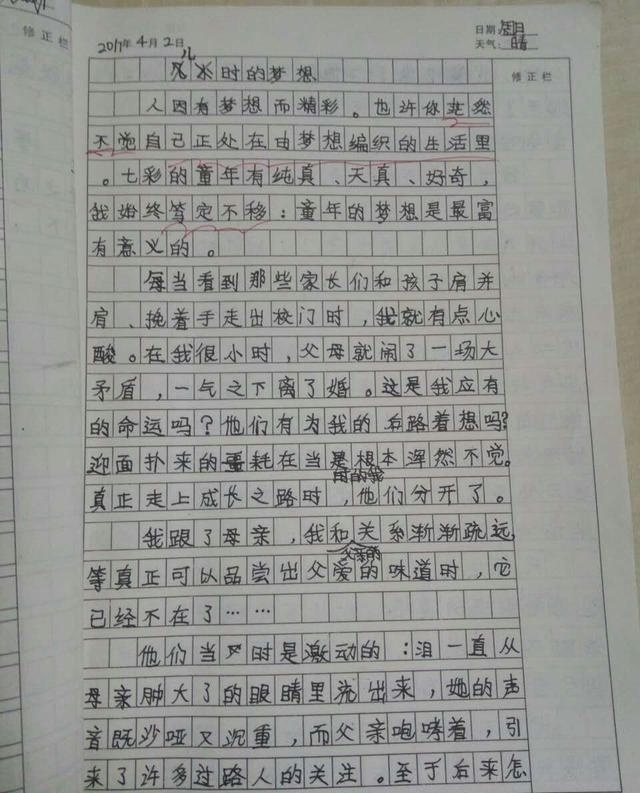 修正栏
2017年4月2日
日期:周日
天气:晴
修正栏
儿时的梦想
人因有梦想而精彩。也许你茫然
不觉自己正处在由梦想编织的生活里
。七彩的童年有纯真、天真、好奇，
我始终笃定不移：童年的梦想是最富
有意义的。
每当看到那些家长们和孩子肩并
肩、挽着手走出校门时，我就有点心
酸。在我很小时，父母就闹了一场大
矛盾，一气之下离了婚。这是我应有
的命运吗？他们有为我的 路着想吗？
迎面扑来的噩耗在当是根本浑然不觉。
时的我
真正走上成长之路时，他们分开了。
我跟了母亲，我和关系渐渐疏远，
父亲的
等真正可以品尝出父爱的味道时，它
已经不在了……
他们当时是激动的：泪一直从
母亲肿大了的眼睛里流出来，她的声
音既沙哑又沉重，而父亲咆哮着，引
来了许多过路人的关注。至于后来怎